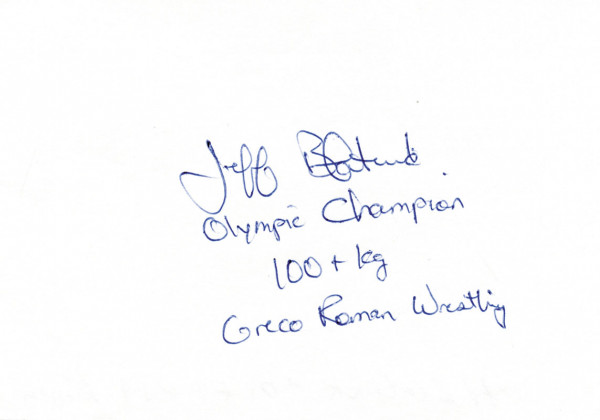 Jeff Blatnick
Olympic Champion
100 + kg
Greco Roman Wrestling